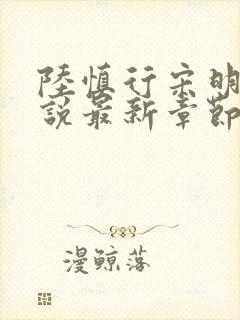 陸慎行宋明
說最新章節
漫鲸落